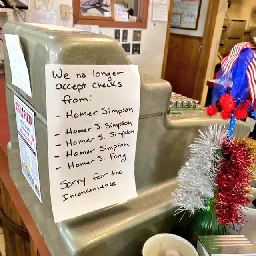 We no longer
accept checks
from:
- Homer Simpson
- Homer J. Simpson
- Homer S. Simpson
- Homer Simpson
- Homer J. Fong
Sorry for the
Inconvenience